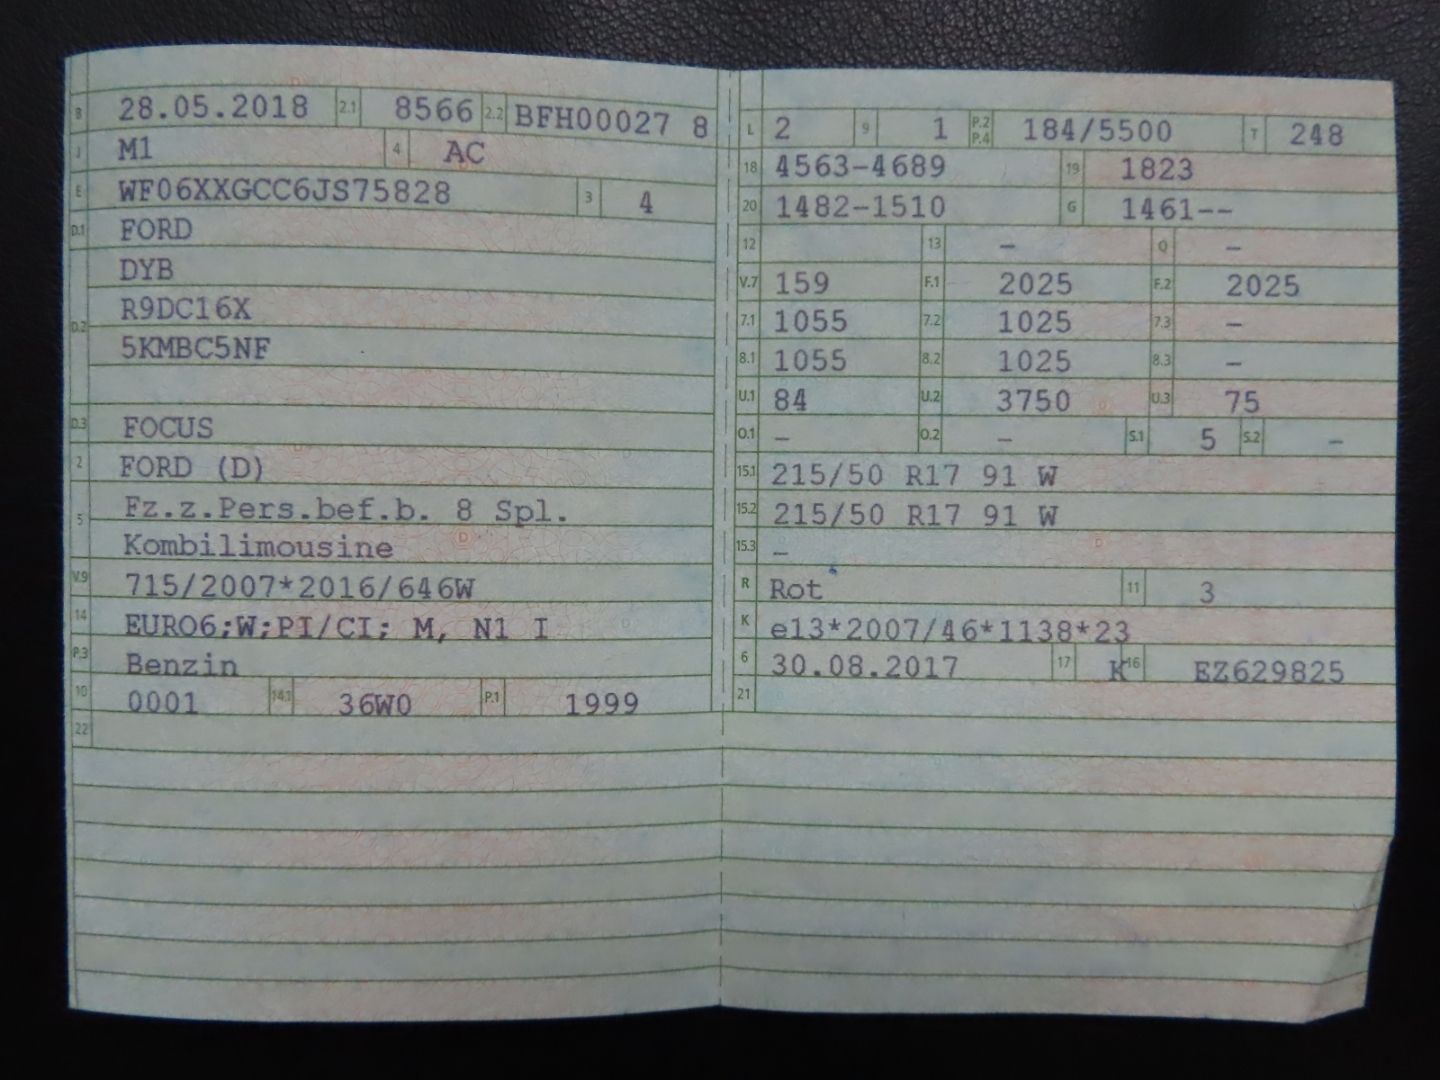 B 28.05.2018 2.1 8566 2.2 BFH00027 8
J M1 4 AC
E WF06XXGCC6JS75828 3 4
D.1 FORD
DYB
D.2 R9DC16X
5KMBC5NF
D.3 FOCUS
2 FORD (D)
5 Fz.z.Pers.bef.b. 8 Spl.
Kombilimousine
V.9 715/2007*2016/646W
14 EURO6;W;PI/CI; M, N1 I
P.3 Benzin
10 0001 14.1 36W0 P.1 1999
22
L 2 9 1 P.2 P.4 184/5500 T 248
18 4563-4689 19 1823
20 1482-1510 G 1461--
12 13 - Q -
V.7 159 F.1 2025 F.2 2025
7.1 1055 7.2 1025 7.3 -
8.1 1055 8.2 1025 8.3 -
U.1 84 U.2 3750 U.3 75
O.1 - O.2 - S.1 5 S.2 -
15.1 215/50 R17 91 W
15.2 215/50 R17 91 W
15.3 -
R Rot 11 3
K e13*2007/46*1138*23
6 30.08.2017 17 K 16 EZ629825
21